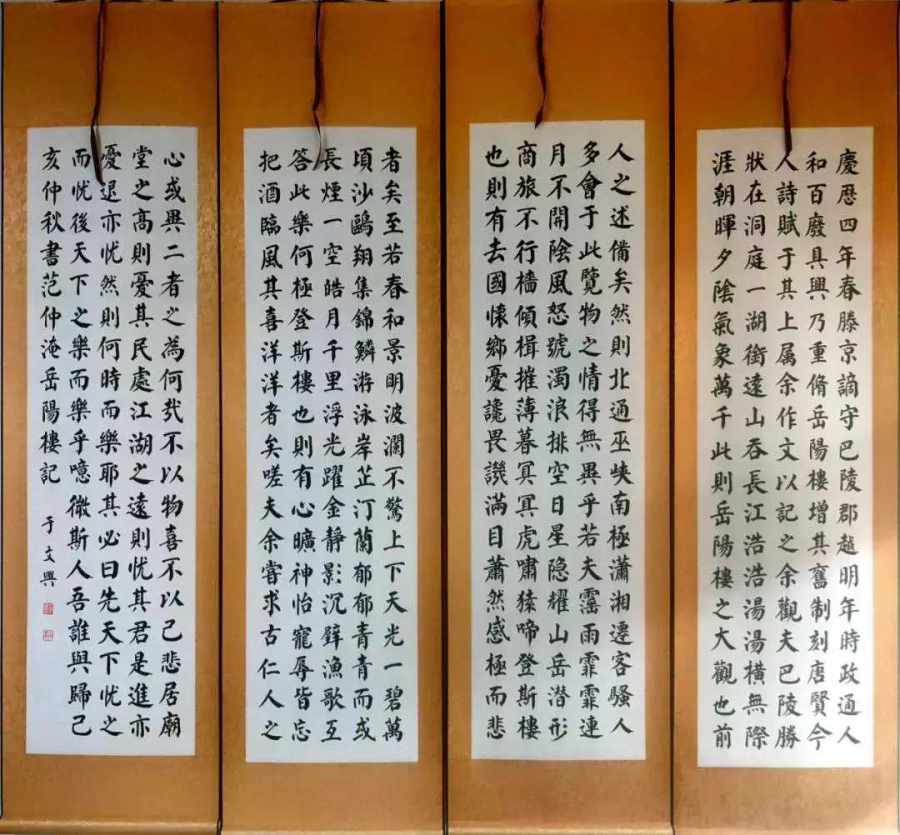 慶曆四年春滕京謫守巴陵郡越明年時政通人
和百廢具興乃重脩岳陽樓增其舊制刻唐賢今
人詩賦于其上属余作文以記之余觀夫巴陵勝
狀在洞庭一湖銜遠山吞長江浩浩湯湯橫無際
涯朝暉夕陰氣象萬千此則岳陽樓之大觀也前
人之述備矣然則北通巫峽南極瀟湘遷客騷人
多會于此覽物之情得無異乎若夫霪雨霏霏連
月不開陰風怒號濁浪排空日星隐耀山岳潜形
商旅不行檣傾楫摧薄暮冥冥虎嘯猿啼登斯樓
也則有去國懷鄉憂讒畏譏滿目蕭然感極而悲
者矣至若春和景明波瀾不驚上下天光一碧萬
頃沙鷗翔集錦鱗游泳岸芷汀蘭郁郁青青而或
長煙一空皓月千里浮光躍金靜影沉璧漁歌互
答此樂何極登斯樓也則有心曠神怡寵辱皆忘
把酒臨風其喜洋洋者矣嗟夫余嘗求古仁人之
心或異二者之為何哉不以物喜不以己悲居廟
堂之高則憂其民處江湖之遠則忧其君是進亦
憂退亦忧然則何時而樂耶其必曰先天下忧之
而忧後天下之樂而樂乎噫微斯人吾誰與歸己
亥仲秋書范仲淹岳陽樓記
于文興